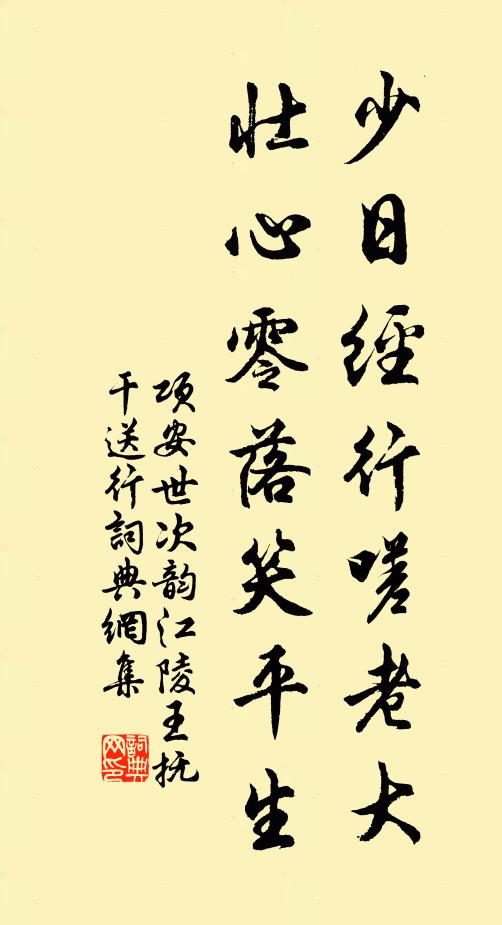 少日經行嗟老大
壯心零落笑平生
项安世次韵江陵王抚
干送行詞典網集
詞典
网印